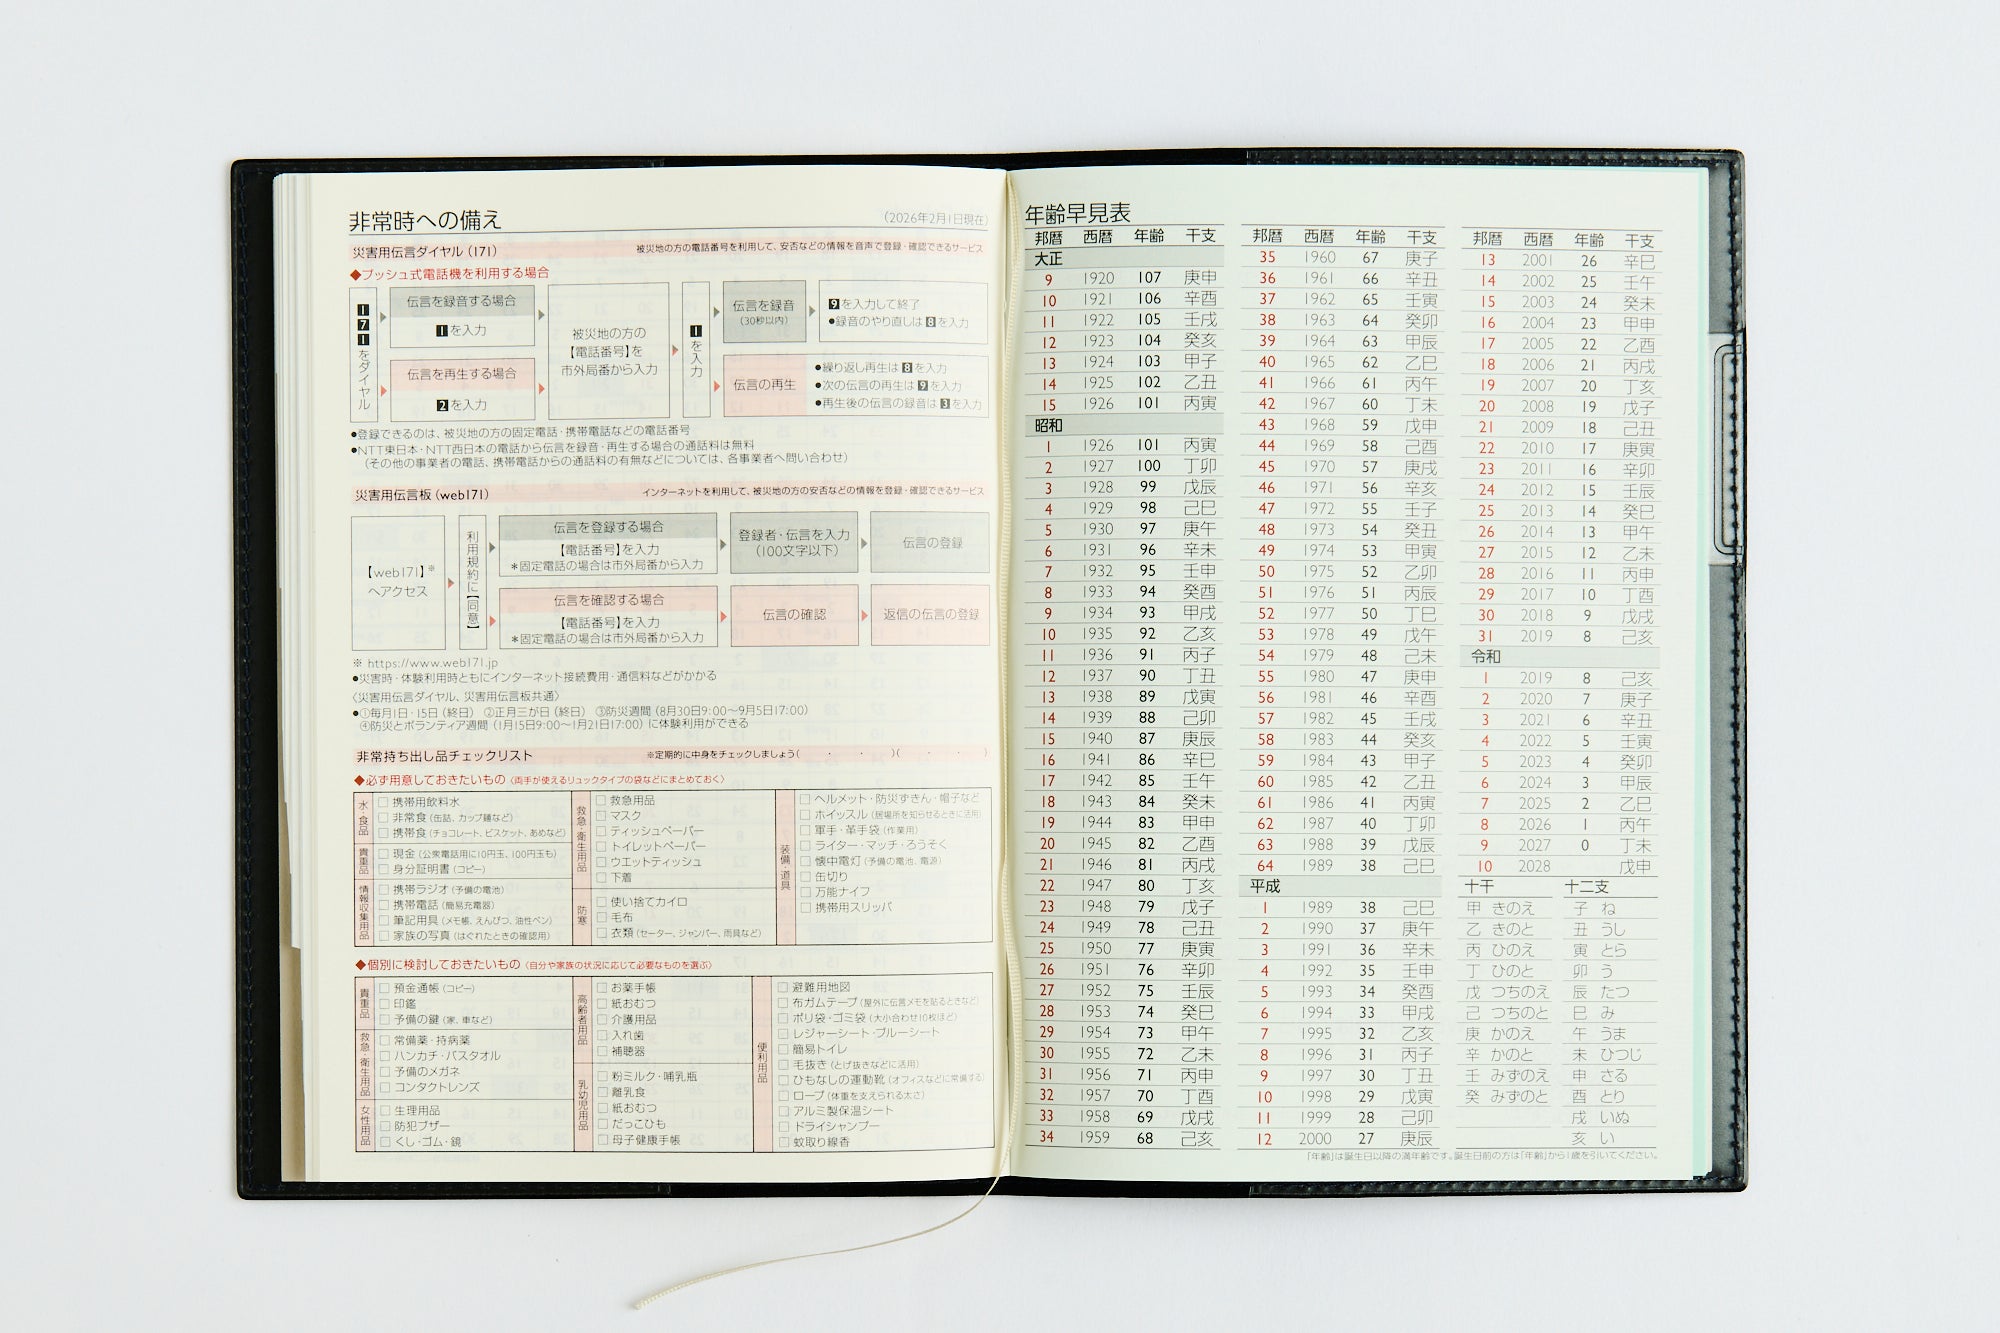 非常時への備え
(2026年2月1日現在)
災害用伝言ダイヤル(171)
被災地の方の電話番号を利用して、安否などの情報を音声で登録・確認できるサービス
◆プッシュ式電話機を利用する場合
171をダイヤル
伝言を録音する場合
1を入力
伝言を再生する場合
2を入力
被災地の方の
【電話番号】を
市外局番から入力
1を入力
伝言を録音
(30秒以内)
9を入力して終了
●録音のやり直しは8を入力
伝言の再生
●繰り返し再生は8を入力
●次の伝言の再生は9を入力
●再生後の伝言の録音は3を入力
●登録できるのは、被災地の方の固定電話・携帯電話などの電話番号
●NTT東日本・NTT西日本の電話から伝言を録音・再生する場合の通話料は無料
(その他の事業者の電話、携帯電話からの通話料の有無などについては、各事業者へ問い合わせ)
災害用伝言板(web171)
インターネットを利用して、被災地の方の安否などの情報を登録・確認できるサービス
【web171】※
へアクセス
利用規約に【同意】
伝言を登録する場合
【電話番号】を入力
*固定電話の場合は市外局番から入力
登録者・伝言を入力
(100文字以下)
伝言の登録
伝言を確認する場合
【電話番号】を入力
*固定電話の場合は市外局番から入力
伝言の確認
返信の伝言の登録
※ https://www.web171.jp
●災害時・体験利用時ともにインターネット接続費用・通信料などがかかる
〈災害用伝言ダイヤル、災害用伝言板共通〉
●①毎月1日・15日(終日) ②正月三が日(終日) ③防災週間(8月30日9:00〜9月5日17:00)
④防災とボランティア週間(1月15日9:00〜1月21日17:00)に体験利用ができる
非常持ち出し品チェックリスト
※定期的に中身をチェックしましょう( ・ ・ )( ・ ・ )
◆必ず用意しておきたいもの〈両手が使えるリュックタイプの袋などにまとめておく〉
水・食品
□携帯用飲料水
□非常食(缶詰、カップ麺など)
□携帯食(チョコレート、ビスケット、あめなど)
貴重品
□現金(公衆電話用に10円玉、100円玉も)
□身分証明書(コピー)
情報収集用品
□携帯ラジオ(予備の電池)
□携帯電話(簡易充電器)
□筆記用具(メモ帳、えんぴつ、油性ペン)
□家族の写真(はぐれたときの確認用)
救急・衛生用品
□救急用品
□マスク
□ティッシュペーパー
□トイレットペーパー
□ウエットティッシュ
□下着
防寒
□使い捨てカイロ
□毛布
□衣類(セーター、ジャンパー、雨具など)
装備・道具
□ヘルメット・防災ずきん・帽子など
□ホイッスル(居場所を知らせるときに活用)
□軍手・革手袋(作業用)
□ライター・マッチ・ろうそく
□懐中電灯(予備の電池、電源)
□缶切り
□万能ナイフ
□携帯用スリッパ
◆個別に検討しておきたいもの〈自分や家族の状況に応じて必要なものを選ぶ〉
貴重品
□預金通帳(コピー)
□印鑑
□予備の鍵(家、車など)
救急・衛生用品
□常備薬・持病薬
□ハンカチ・バスタオル
□予備のメガネ
□コンタクトレンズ
女性用品
□生理用品
□防犯ブザー
□くし・ゴム・鏡
高齢者用品
□お薬手帳
□紙おむつ
□介護用品
□入れ歯
□補聴器
乳幼児用品
□粉ミルク・哺乳瓶
□離乳食
□紙おむつ
□だっこひも
□母子健康手帳
便利用品
□避難用地図
□布ガムテープ(屋外に伝言メモを貼るときなど)
□ポリ袋・ゴミ袋(大小合わせ10枚ほど)
□レジャーシート・ブルーシート
□簡易トイレ
□毛抜き(とげ抜きなどに活用)
□ひもなしの運動靴(オフィスなどに常備する)
□ロープ(体重を支えられる太さ)
□アルミ製保温シート
□ドライシャンプー
□蚊取り線香
年齢早見表
邦暦 西暦 年齢 干支
大正
9 1920 107 庚申
10 1921 106 辛酉
11 1922 105 壬戌
12 1923 104 癸亥
13 1924 103 甲子
14 1925 102 乙丑
15 1926 101 丙寅
昭和
1 1926 101 丙寅
2 1927 100 丁卯
3 1928 99 戊辰
4 1929 98 己巳
5 1930 97 庚午
6 1931 96 辛未
7 1932 95 壬申
8 1933 94 癸酉
9 1934 93 甲戌
10 1935 92 乙亥
11 1936 91 丙子
12 1937 90 丁丑
13 1938 89 戊寅
14 1939 88 己卯
15 1940 87 庚辰
16 1941 86 辛巳
17 1942 85 壬午
18 1943 84 癸未
19 1944 83 甲申
20 1945 82 乙酉
21 1946 81 丙戌
22 1947 80 丁亥
23 1948 79 戊子
24 1949 78 己丑
25 1950 77 庚寅
26 1951 76 辛卯
27 1952 75 壬辰
28 1953 74 癸巳
29 1954 73 甲午
30 1955 72 乙未
31 1956 71 丙申
32 1957 70 丁酉
33 1958 69 戊戌
34 1959 68 己亥
邦暦 西暦 年齢 干支
35 1960 67 庚子
36 1961 66 辛丑
37 1962 65 壬寅
38 1963 64 癸卯
39 1964 63 甲辰
40 1965 62 乙巳
41 1966 61 丙午
42 1967 60 丁未
43 1968 59 戊申
44 1969 58 己酉
45 1970 57 庚戌
46 1971 56 辛亥
47 1972 55 壬子
48 1973 54 癸丑
49 1974 53 甲寅
50 1975 52 乙卯
51 1976 51 丙辰
52 1977 50 丁巳
53 1978 49 戊午
54 1979 48 己未
55 1980 47 庚申
56 1981 46 辛酉
57 1982 45 壬戌
58 1983 44 癸亥
59 1984 43 甲子
60 1985 42 乙丑
61 1986 41 丙寅
62 1987 40 丁卯
63 1988 39 戊辰
64 1989 38 己巳
平成
1 1989 38 己巳
2 1990 37 庚午
3 1991 36 辛未
4 1992 35 壬申
5 1993 34 癸酉
6 1994 33 甲戌
7 1995 32 乙亥
8 1996 31 丙子
9 1997 30 丁丑
10 1998 29 戊寅
11 1999 28 己卯
12 2000 27 庚辰
邦暦 西暦 年齢 干支
13 2001 26 辛巳
14 2002 25 壬午
15 2003 24 癸未
16 2004 23 甲申
17 2005 22 乙酉
18 2006 21 丙戌
19 2007 20 丁亥
20 2008 19 戊子
21 2009 18 己丑
22 2010 17 庚寅
23 2011 16 辛卯
24 2012 15 壬辰
25 2013 14 癸巳
26 2014 13 甲午
27 2015 12 乙未
28 2016 11 丙申
29 2017 10 丁酉
30 2018 9 戊戌
31 2019 8 己亥
令和
1 2019 8 己亥
2 2020 7 庚子
3 2021 6 辛丑
4 2022 5 壬寅
5 2023 4 癸卯
6 2024 3 甲辰
7 2025 2 乙巳
8 2026 1 丙午
9 2027 0 丁未
10 2028 戊申
十干 十二支
甲 きのえ 子 ね
乙 きのと 丑 うし
丙 ひのえ 寅 とら
丁 ひのと 卯 う
戊 つちのえ 辰 たつ
己 つちのと 巳 み
庚 かのえ 午 うま
辛 かのと 未 ひつじ
壬 みずのえ 申 さる
癸 みずのと 酉 とり
戌 いぬ
亥 い
「年齢」は誕生日以降の満年齢です。誕生日前の方は「年齢」から1歳を引いてください。